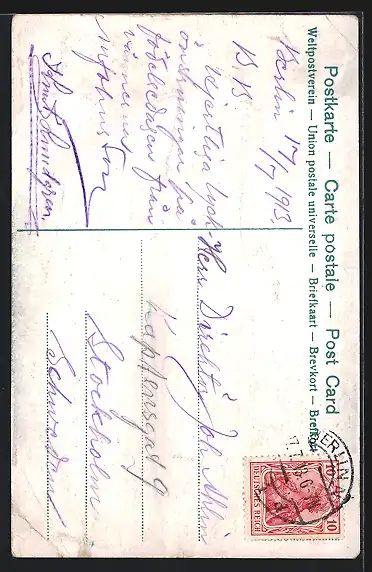 Postkarte — Carte postale — Post Card
Weltpostverein — Union postale universelle — Briefkaart — Brevkort — Brefkort
Berlin 17/7 1913.
B B
Hjertliga lyck-
önskningar på
födelsedagen från
vännerna
Knut Lindgren
Herr Direktör Joh
Kaptensgat 9
Stockholm
Schweden
BERLIN
DEUTSCHES REICH
10
10